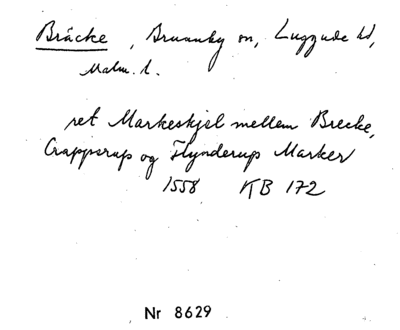 Bräcke, Brunnby sn, Luggude hd,
Malm. l.
ret Markeskjel mellem Brecke,
Crapperup og Flynderup Marker
1558 KB 172
Nr 8629